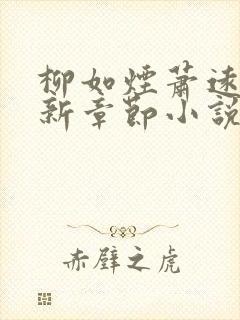 柳如煙蕭逸
新章節小説
赤壁之虎